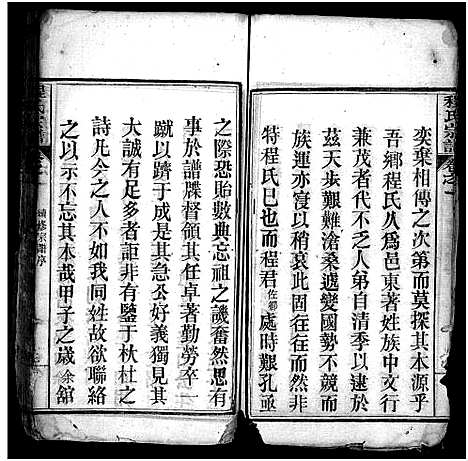 程氏宗譜
卷之一
奕葉相傳之次第而莫探其本源乎
吾鄉程氏久爲邑東著姓族中文行
兼茂者代不乏人第自清季以逮於
茲天步艱難滄桑遞變國勢不競而
族運往往亦窮以稍稍衰落然而
特程氏已也而程君佐卿處時艱孔亟
之際恐貽數典忘祖之譏奮然思有
事於譜牒督領其任卓著勤勞卒一
蹴以躋于成是其急公好義獨見其
大誠有足多者詎非有鑒于秋杜之
詩凡今之人不如我同姓故欲聯絡
之以示不忘其本哉甲子之歲余舘
續修宗譜序